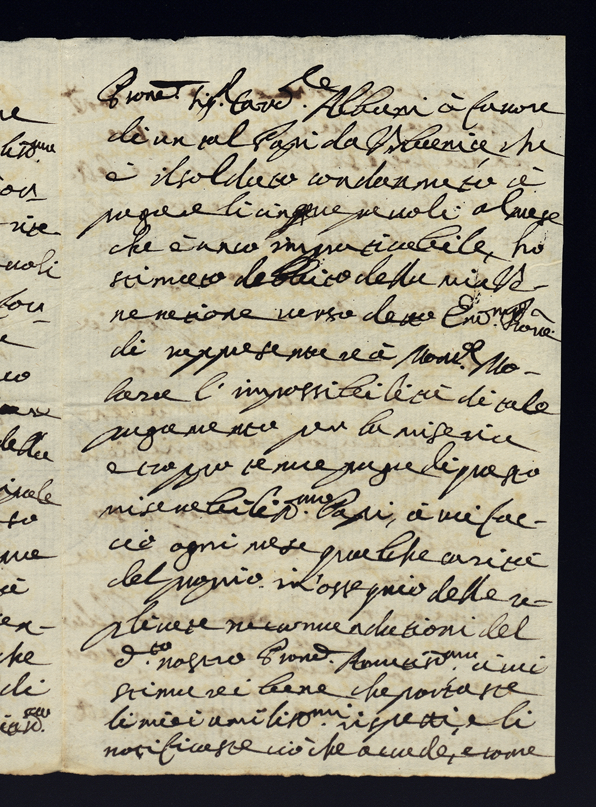 Prone. Sig.r Card.le Albani à favore
di un tal Papi da Urbania che
è il soldato condannato à
pagare li cinque pauoli al mese
che è anco impraticabile, ho
stimato debbito della mia Ve-
neratione verso detto Em.mo Prone
di rappresentare à Mons.r Mo-
lara l'impossibilità di tale
pagamento per la miseria
e troppo tenue paga di questo
miserabiliss.mo Papi, à cui fac-
cio ogni mese qualche carità
del proprio in ossequio delle re-
plicate raccomendationi del
d.to nostro Prone. Amatiss.mo à cui
stimarei bene che portaste
li miei umiliss.mi rispetti, e li
notificaste ciò che accade, e come